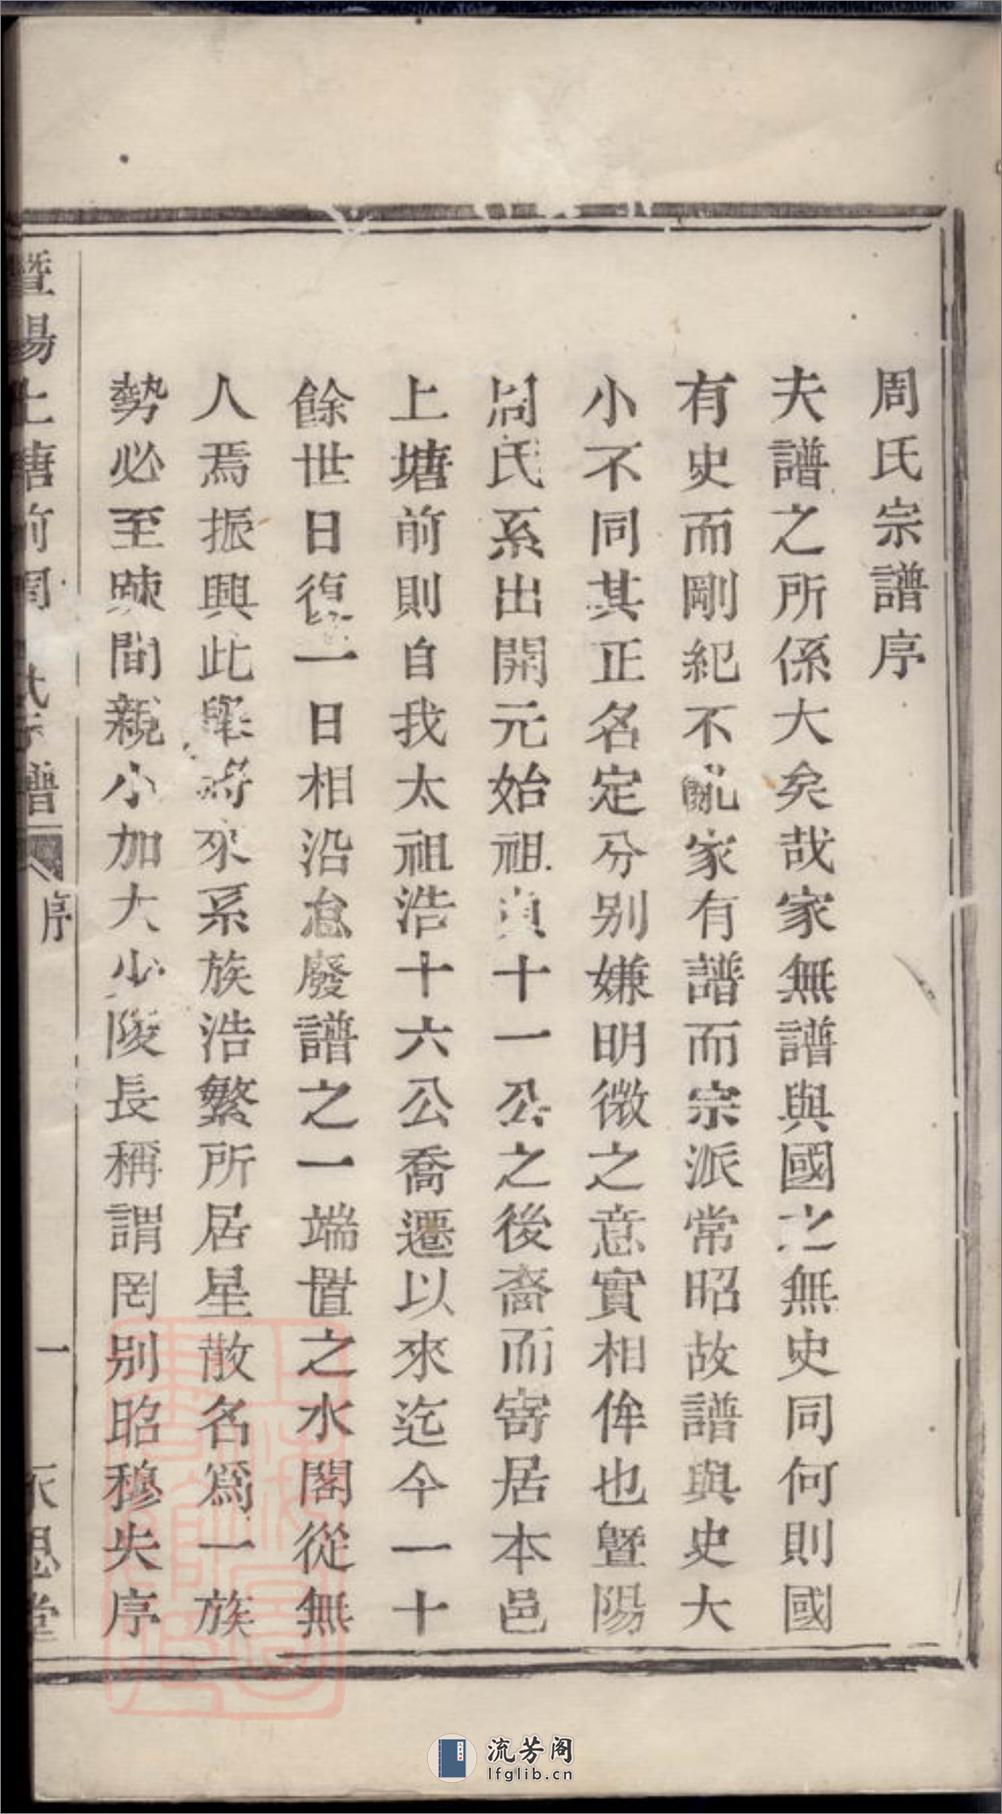 周氏宗譜序
夫譜之所係大矣哉家無譜與國之無史同何則國
有史而剛紀不亂家有譜而宗派常昭故譜與史大
小不同其正名定分别嫌明微之意實相侔也暨陽
周氏系出開元始祖貞十一公之後裔而寄居本邑
上塘前則自我太祖浩十六公喬遷以來迄今一十
餘世日復一日相沿怠廢譜之一端置之水閣從無
人焉振興此舉將來系族浩繁所居星散名爲一族
勢必至踈間親小加大少陵長稱謂罔别昭穆失序
暨陽上塘前周氏宗譜
序
一
思堂
流芳阁
lfglib.cn